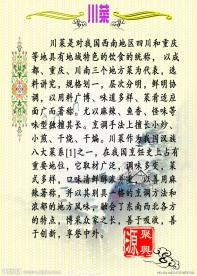 川菜
川菜是对我国西南地区四川和重庆
等地具有地域特色的饮食的统称，以成
都、重庆、川南三个地方菜为代表，选
料讲究，规格划一，层次分明，鲜明协
调。以用料广博、味道多样、菜肴适应
面广而著称，尤以麻辣、鱼香、怪味等
味型独擅其长。烹调手法上擅长小炒、
小煎、干烧、干煸。川菜作为我国汉族
八大菜系[1]之一，在我国烹饪史上占有
重要地位，它取材广泛，调味多变，菜式
多样，口味清鲜醇浓并重，以善用麻
辣著称，并以其别具一格的烹调方法和
浓郁的地方风味，融会了东南西北各方
的特点，博采众家之长，善于吸收，善
于创新，享誉中外。
聚興
源